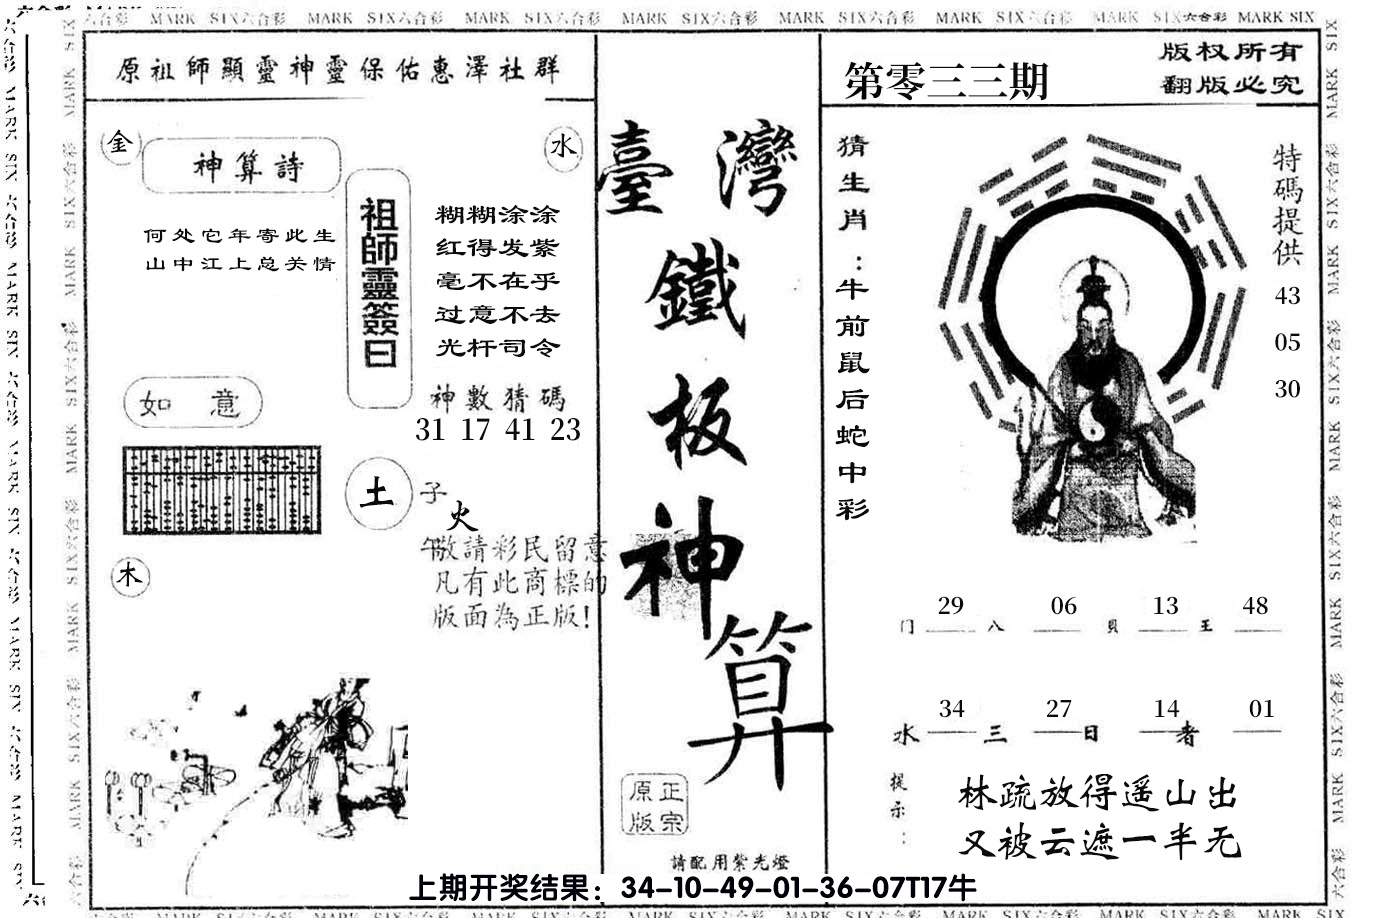 MARK SIX六合彩 MARK SIX六合彩 MARK SIX六合彩 MARK SIX六合彩 MARK SIX六合彩 MARK SIX六合彩 MARK SIX六合彩 MARK SIX
原祖師顯靈神靈保佑惠澤社群
金
水
神算詩
何处它年寄此生
山中江上总关情
祖師靈簽曰
糊糊涂涂
红得发紫
毫不在乎
过意不去
光杆司令
神數猜碼
31 17 41 23
如意
土
子
火
午
木
敬請彩民留意
凡有此商標的
版面為正版!
臺灣
鐵
板
神
算
正宗
原版
請配用紫光燈
第零三三期
版权所有
翻版必究
猜生肖:牛前鼠后蛇中彩
特碼提供
43
05
30
29 06 13 48
门 八 貝 王
34 27 14 01
水 三 日 者
提示:
林疏放得遥山出
又被云遮一半无
上期开奖结果：34-10-49-01-36-07T17牛